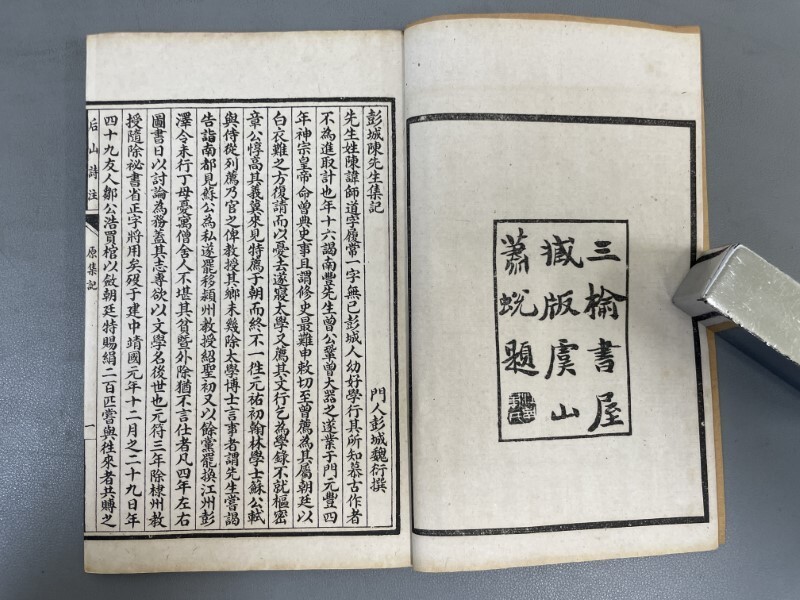 三榆書屋
臧版虞山
蕭蛻題
彭城陳先生集記
門人彭城魏衍撰
先生姓陳諱師道字履常一字無己彭城人幼好學行其所知慕古作者
不為進取計也年十六謁南豐先生曾公鞏曾大器之遂業于門元豐四
年神宗皇帝命曾典史事且謂修史最難申敕切至曾薦為其屬朝廷以
白衣難之方復請而以憂去遂寢太學又薦其文行乞為學錄不就樞密
章公惇高其義冀來見特薦于朝而終不一往元祐初翰林學士蘇公軾
與侍從列薦乃官之俾教授其鄉未幾除太學博士言事者謂先生嘗謁
告詣南都見蘇公為私遂罷移潁州教授紹聖初又以餘黨罷換江州彭
澤令未行丁母憂寓僧舍人不堪其貧暨外除猶不言仕者凡四年左右
圖書日以討論為務蓋其志專欲以文學名後世也元符三年除棣州教
授隨除祕書省正字將用矣歿于建中靖國元年十二月之二十九日年
四十九友人鄒公浩買棺以斂朝廷特賜絹二百匹嘗與往來者共賻之
后山詩注
原集記
一